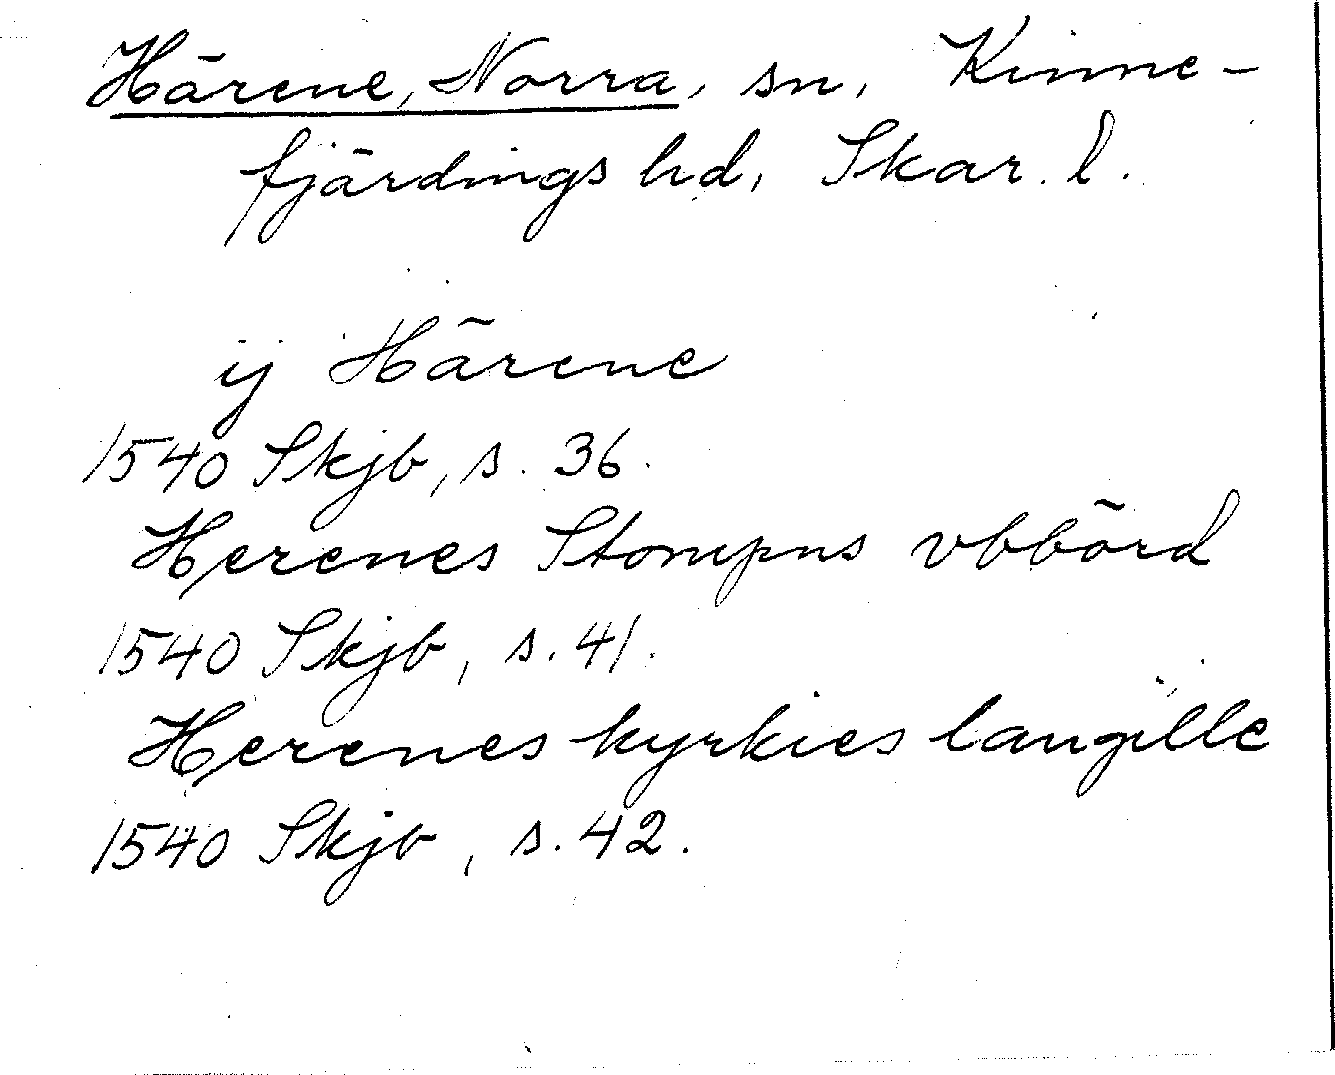 Härene, Norra, sn, Kinne-
fjärdings hd, Skar. l.
ij Härene
1540 Skjb, s. 36.
Herenes Stompns vbbörd
1540 Skjb, s. 41.
Herenes kyrkies langille
1540 Skjb, s. 42.